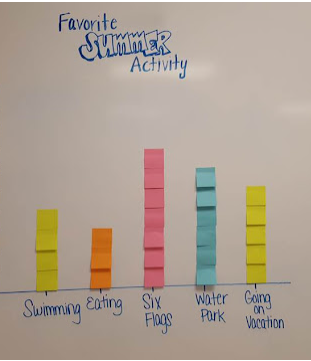 Favorite
SUMMER
Activity
Swimming
Eating
Six
Flags
Water
Park
Going
on
Vacation